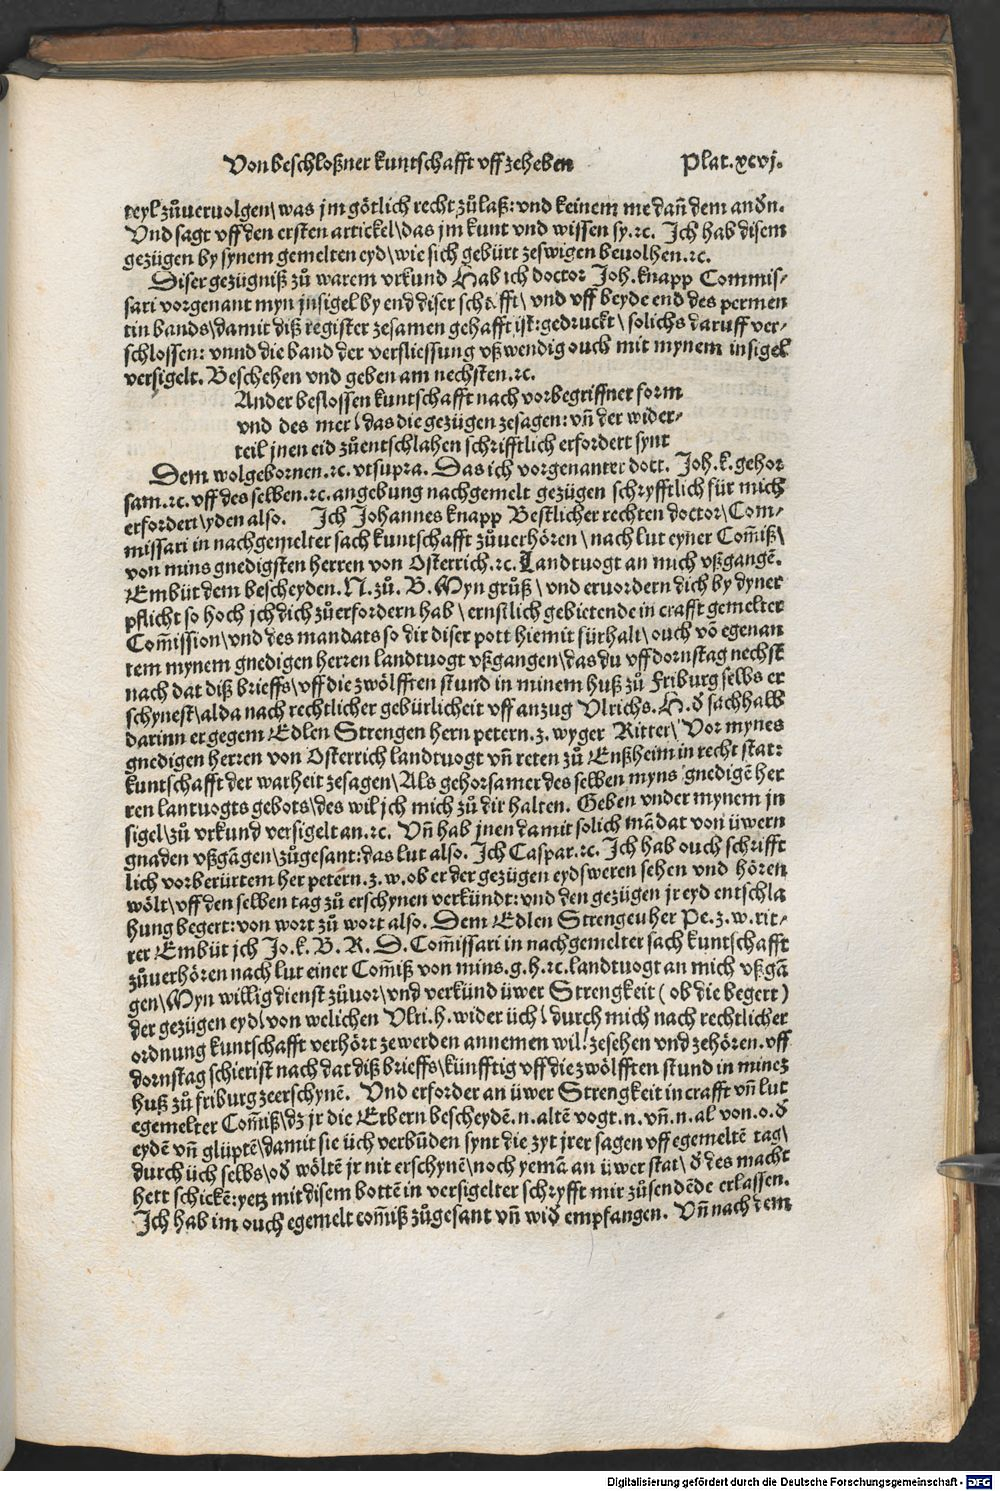 Von beschloßner kuntschafft vff zeheben Plat.xcvj.
teyl zůueruolgen\ was jm götlich recht zůlaß: vnd keinem me dañ dem andn̄.
Vnd sagt vff den ersten artickel\ das jm kunt vnd wissen sy.ꝛc. Ich hab disem
gezügen by synem gemelten eyd\ wie sich gebürt zeswigen beuolhen.ꝛc.
Diser gezügniß zů warem vrkund Hab ich doctor Joh. knapp Commis-
sari vorgenant myn jnsigel by end diser schrifft\ vnd vff beyde end des permen
tin bands\ damit diß register zesamen gehafft ist: gedruckt\ solichs daruff ver-
schlossen: vnnd die band der versliessung vßwendig ouch mit mynem insigel
versigelt. Beschehen vnd geben am nechsten.ꝛc.
Ander beslossen kuntschafft nach vorbegriffner form
vnd des mer\ das die gezügen zesagen: vñ der wider-
teil jnen eid zůentschlahen schrifftlich erfordert synt
Dem wolgebornen.ꝛc. vtsupra. Das ich vorgenanter doct. Joh.k.gehor
sam.ꝛc. vff des selben.ꝛc. angebung nachgemelt gezügen schryfftlich für mich
erfordert\ yden also. Ich Johannes knapp Bestlicher rechten doctor\ Com-
missari in nachgemelter sach kuntschafft zůuerhören\ nach lut eyner Com̄iß\
von mins gnedigsten herren von Osterrich.ꝛc. Landtuogt an mich vßgangē.
Embüt dem bescheyden. N. zů. B. Myn grůß\ vnd eruordern dich by dyner
pflicht so hoch jch dich zůerfordern hab\ ernstlich gebietende in crafft gemelter
Com̄ission\ vnd des mandats so dir diser pott hiemit fürhalt\ ouch vō egenan
tem mynem gnedigen herren landtuogt vßgangen\ das du vff dornstag nechst
nach dat diß brieffs\ vff die zwölfften stund in minem huß zů Friburg selbs er
schynest\ alda nach rechtlicher gebürlicheit vff anzug Vlrichs. H. đ sachhalb
darinn er gegem Edlen Strengen hern petern. z. wyger Ritter\ Vor mynes
gnedigen herren von Osterrich landtuogt vñ reten zů Enßheim in recht stat:
kuntschafft der warheit zesagen\ Als gehorsamer des selben myns gnedigē her
ren lantuogts gebots\ des wil jch mich zů dir halten. Geben vnder mynem jn
sigel\ zů vrkund versigelt an.ꝛc. Vñ hab jnen damit solich mādat von üwern
gnaden vßgāgen\ zůgesant: das lut also. Ich Caspar.ꝛc. Ich hab ouch schrifft
lich vorberürtem her petern. z. w. ob er der gezügen eydsweren sehen vnd hören
wölt\ vff den selben tag zů erschynen verkündt: vnd den gezügen jr eyd entschla
hung begert: von wort zů wort also. Dem Edlen Strengeu her Pe. z. w. rit-
ter Embüt jch Jo. k. B. R. D. Com̄issari in nachgemelter sach kuntschafft
zůuerhören nach lut einer Com̄iß von mins.g.h.ꝛc.landtuogt an mich vßgā
gen\ Myn willig dienst zůuor\ vnd verkünd üwer Strengkeit ( ob die begert )
der gezügen eyd\ von welichen Vlri.h. wider üch\ durch mich nach rechtlicher
ordnung kuntschafft verhört ze werden annemen wil! zesehen vnd zehören. vff
dornstag schierist nach dat diß brieffs\ künfftig vff die zwölfften stund in minez
huß zů friburg zeerschynē. Vnd erforder an üwer Strengkeit in crafft vñ lut
egemelter Com̄iß\ dz jr die Erbern bescheydē. n. altē vogt. n. vñ. n. al von. o. đ
eydē vñ glüptē\ damit sie üch verbūden synt die zyt jrer sagen vff egemeltē tag\
durch üch selbs\ ođ wöltē jr nit erschynē\ noch yemā an üwer stat\ đ des macht
hett schickē: yetz mit disem bottē in versigelter schryfft mir zůsendēde erlassen.
Ich hab im ouch egemelt com̄iß zůgesant vñ wiđ empfangen. Vñ nach dem
Digitalisierung gefördert durch die Deutsche Forschungsgemeinschaft - DFG